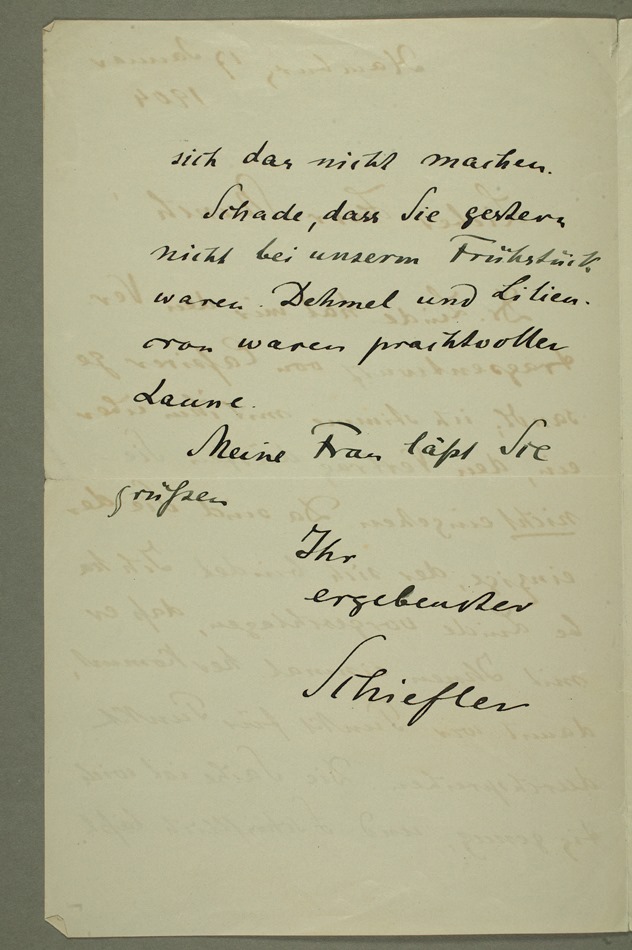 sich das nicht machen.
Schade, dass Sie gestern
nicht bei unserm Frühstück
waren. Dehmel und Lilien-
cron waren prachtvoller
Laune.
Meine Frau läßt Sie
grüßen
Ihr
ergebenster
Schiefler